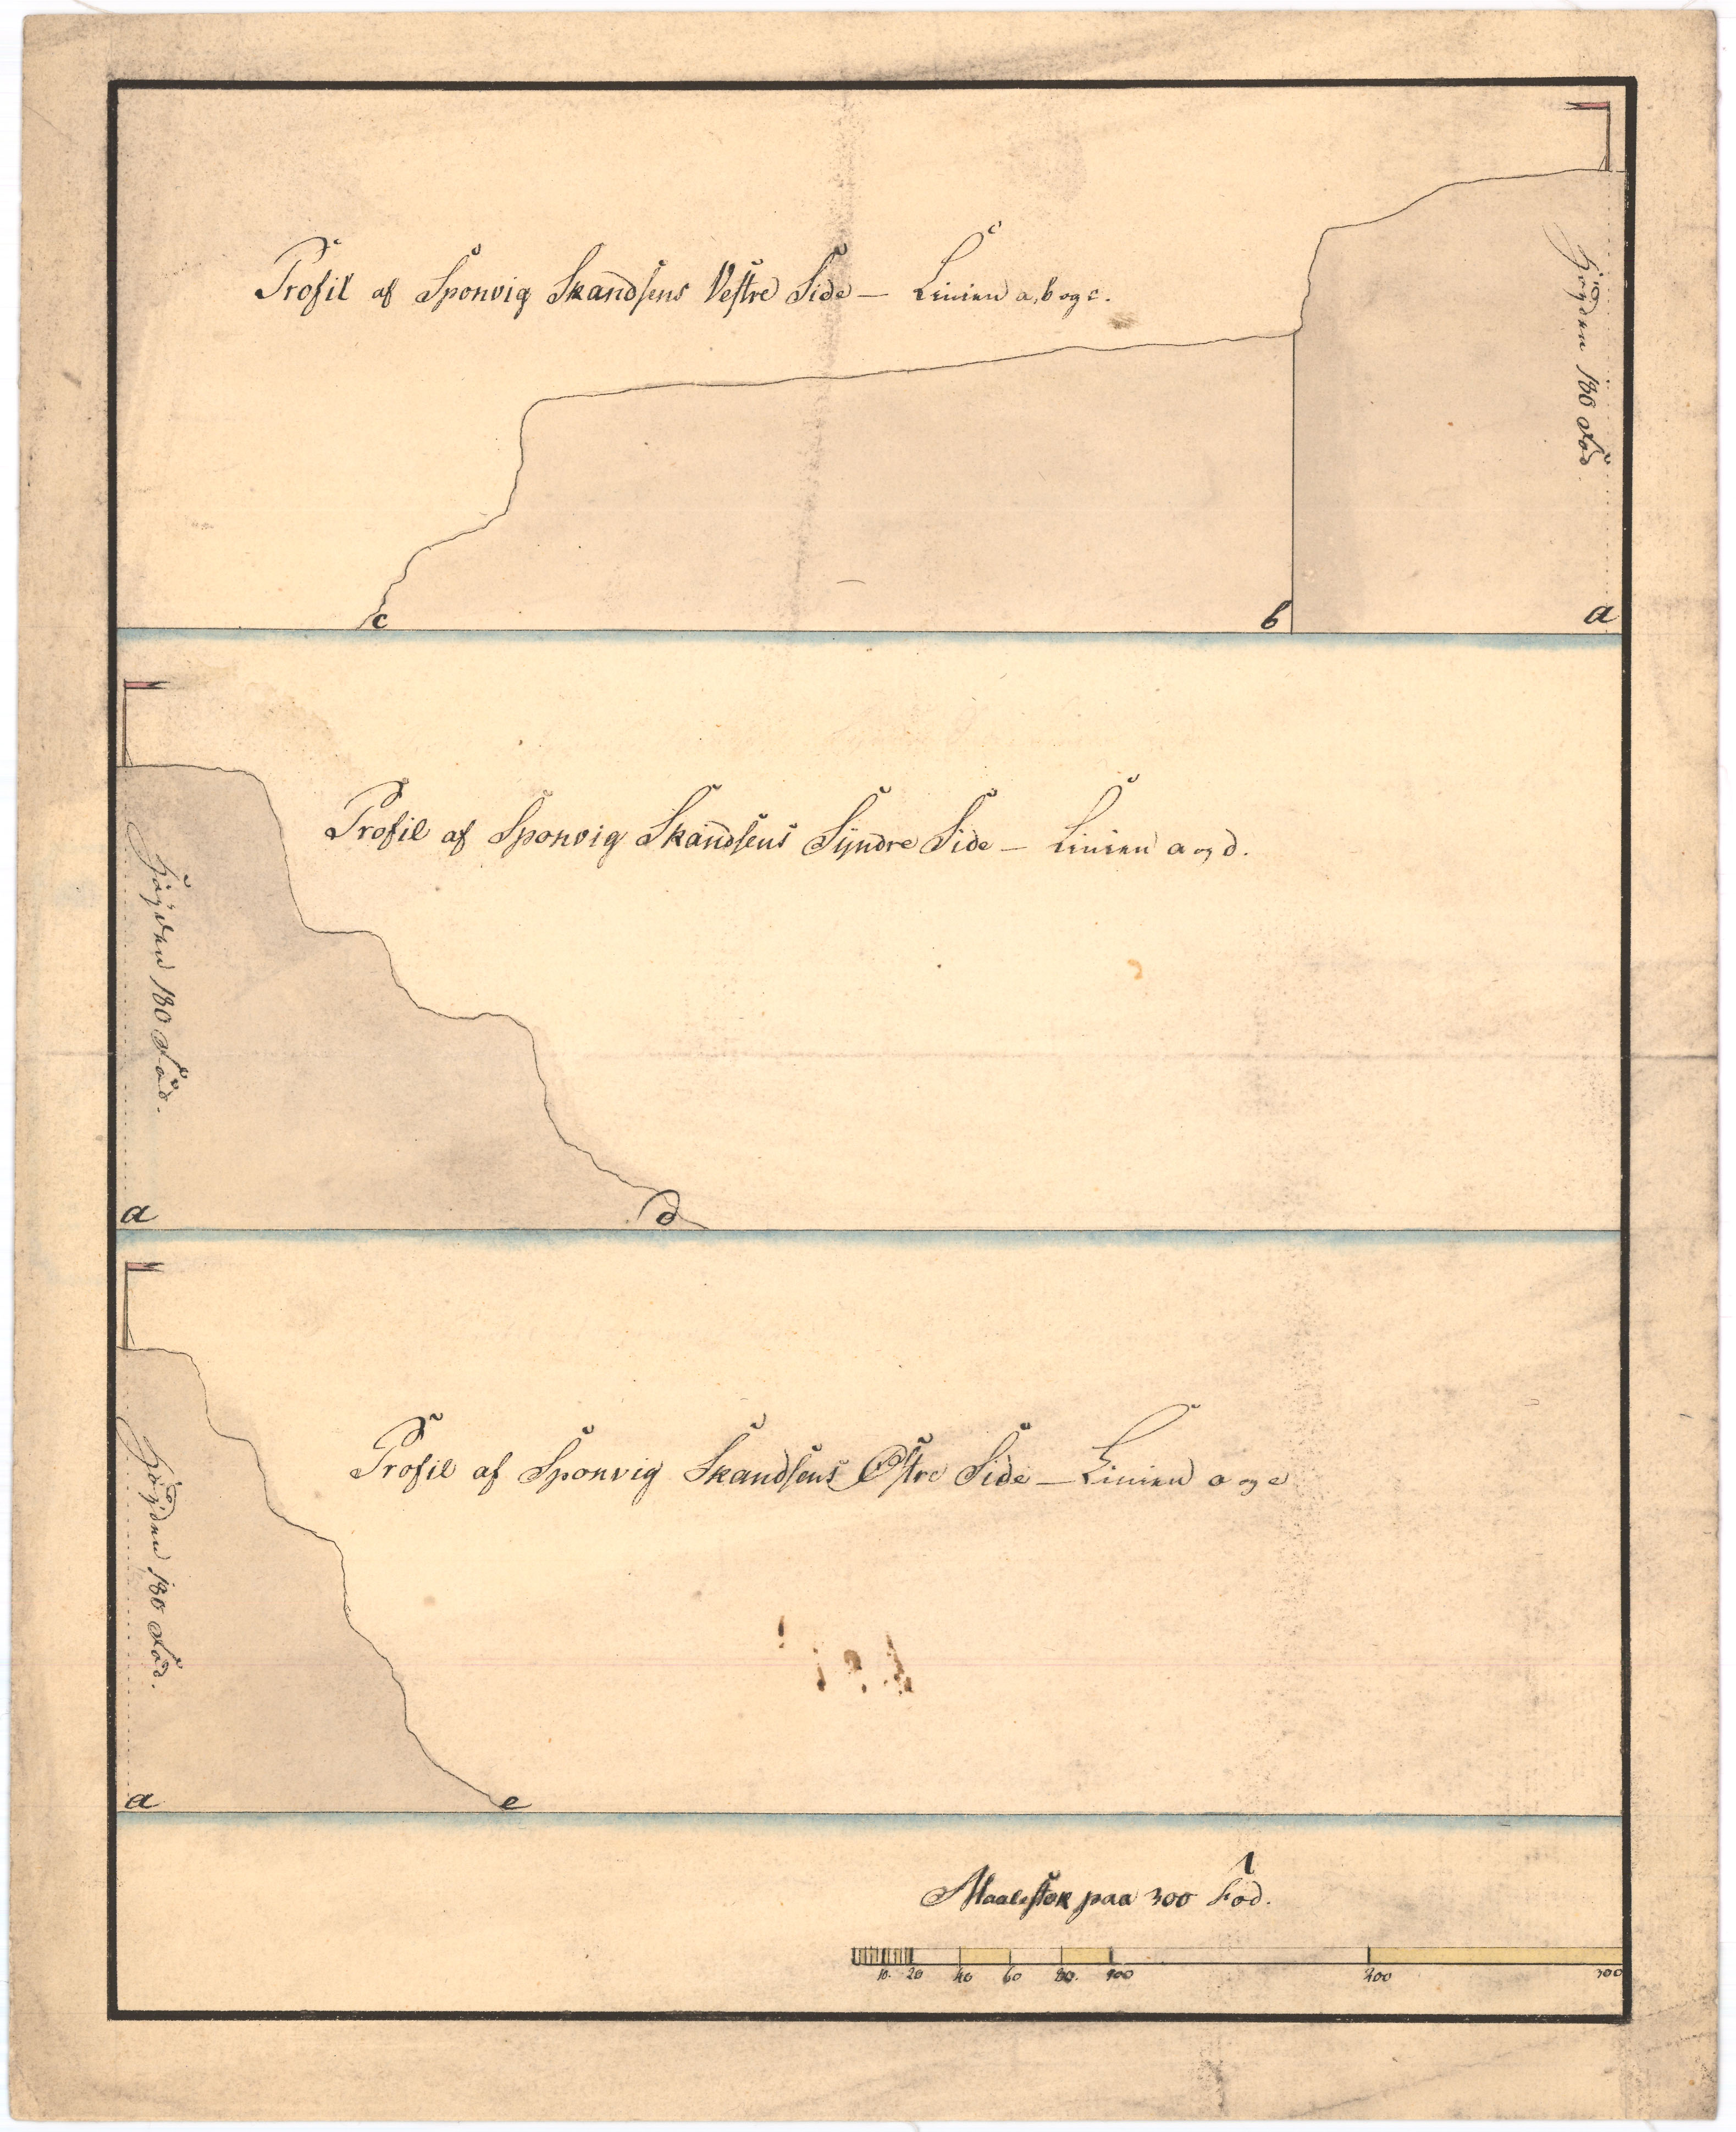 Profil af Sponvig Skandsens Vestre Side — Linien a, b og c.
Höyden 180 Fod.
c
b
a
Profil af Sponvig Skandsens Syndre Side — Linien a og d.
Höyden 180 Fod.
a
d
Profil af Sponvig Skandsens Østre Side — Linien a og e
Höyden 180 Fod.
a
e
Maalestok paa 300 Fod.
10. 20 40 60 80. 100 200 300